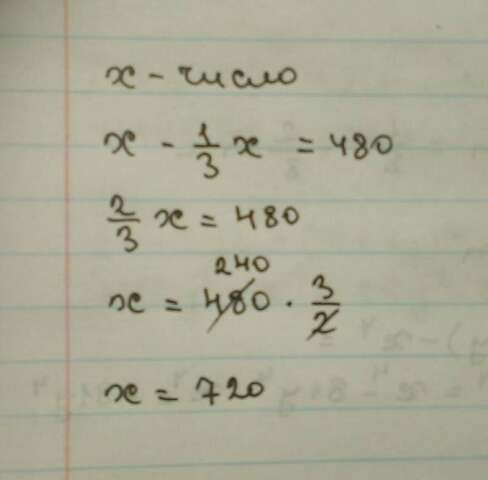 x - число
x - 1/3 x = 480
2/3 x = 480
240
x = 480 · 3/2
x = 720